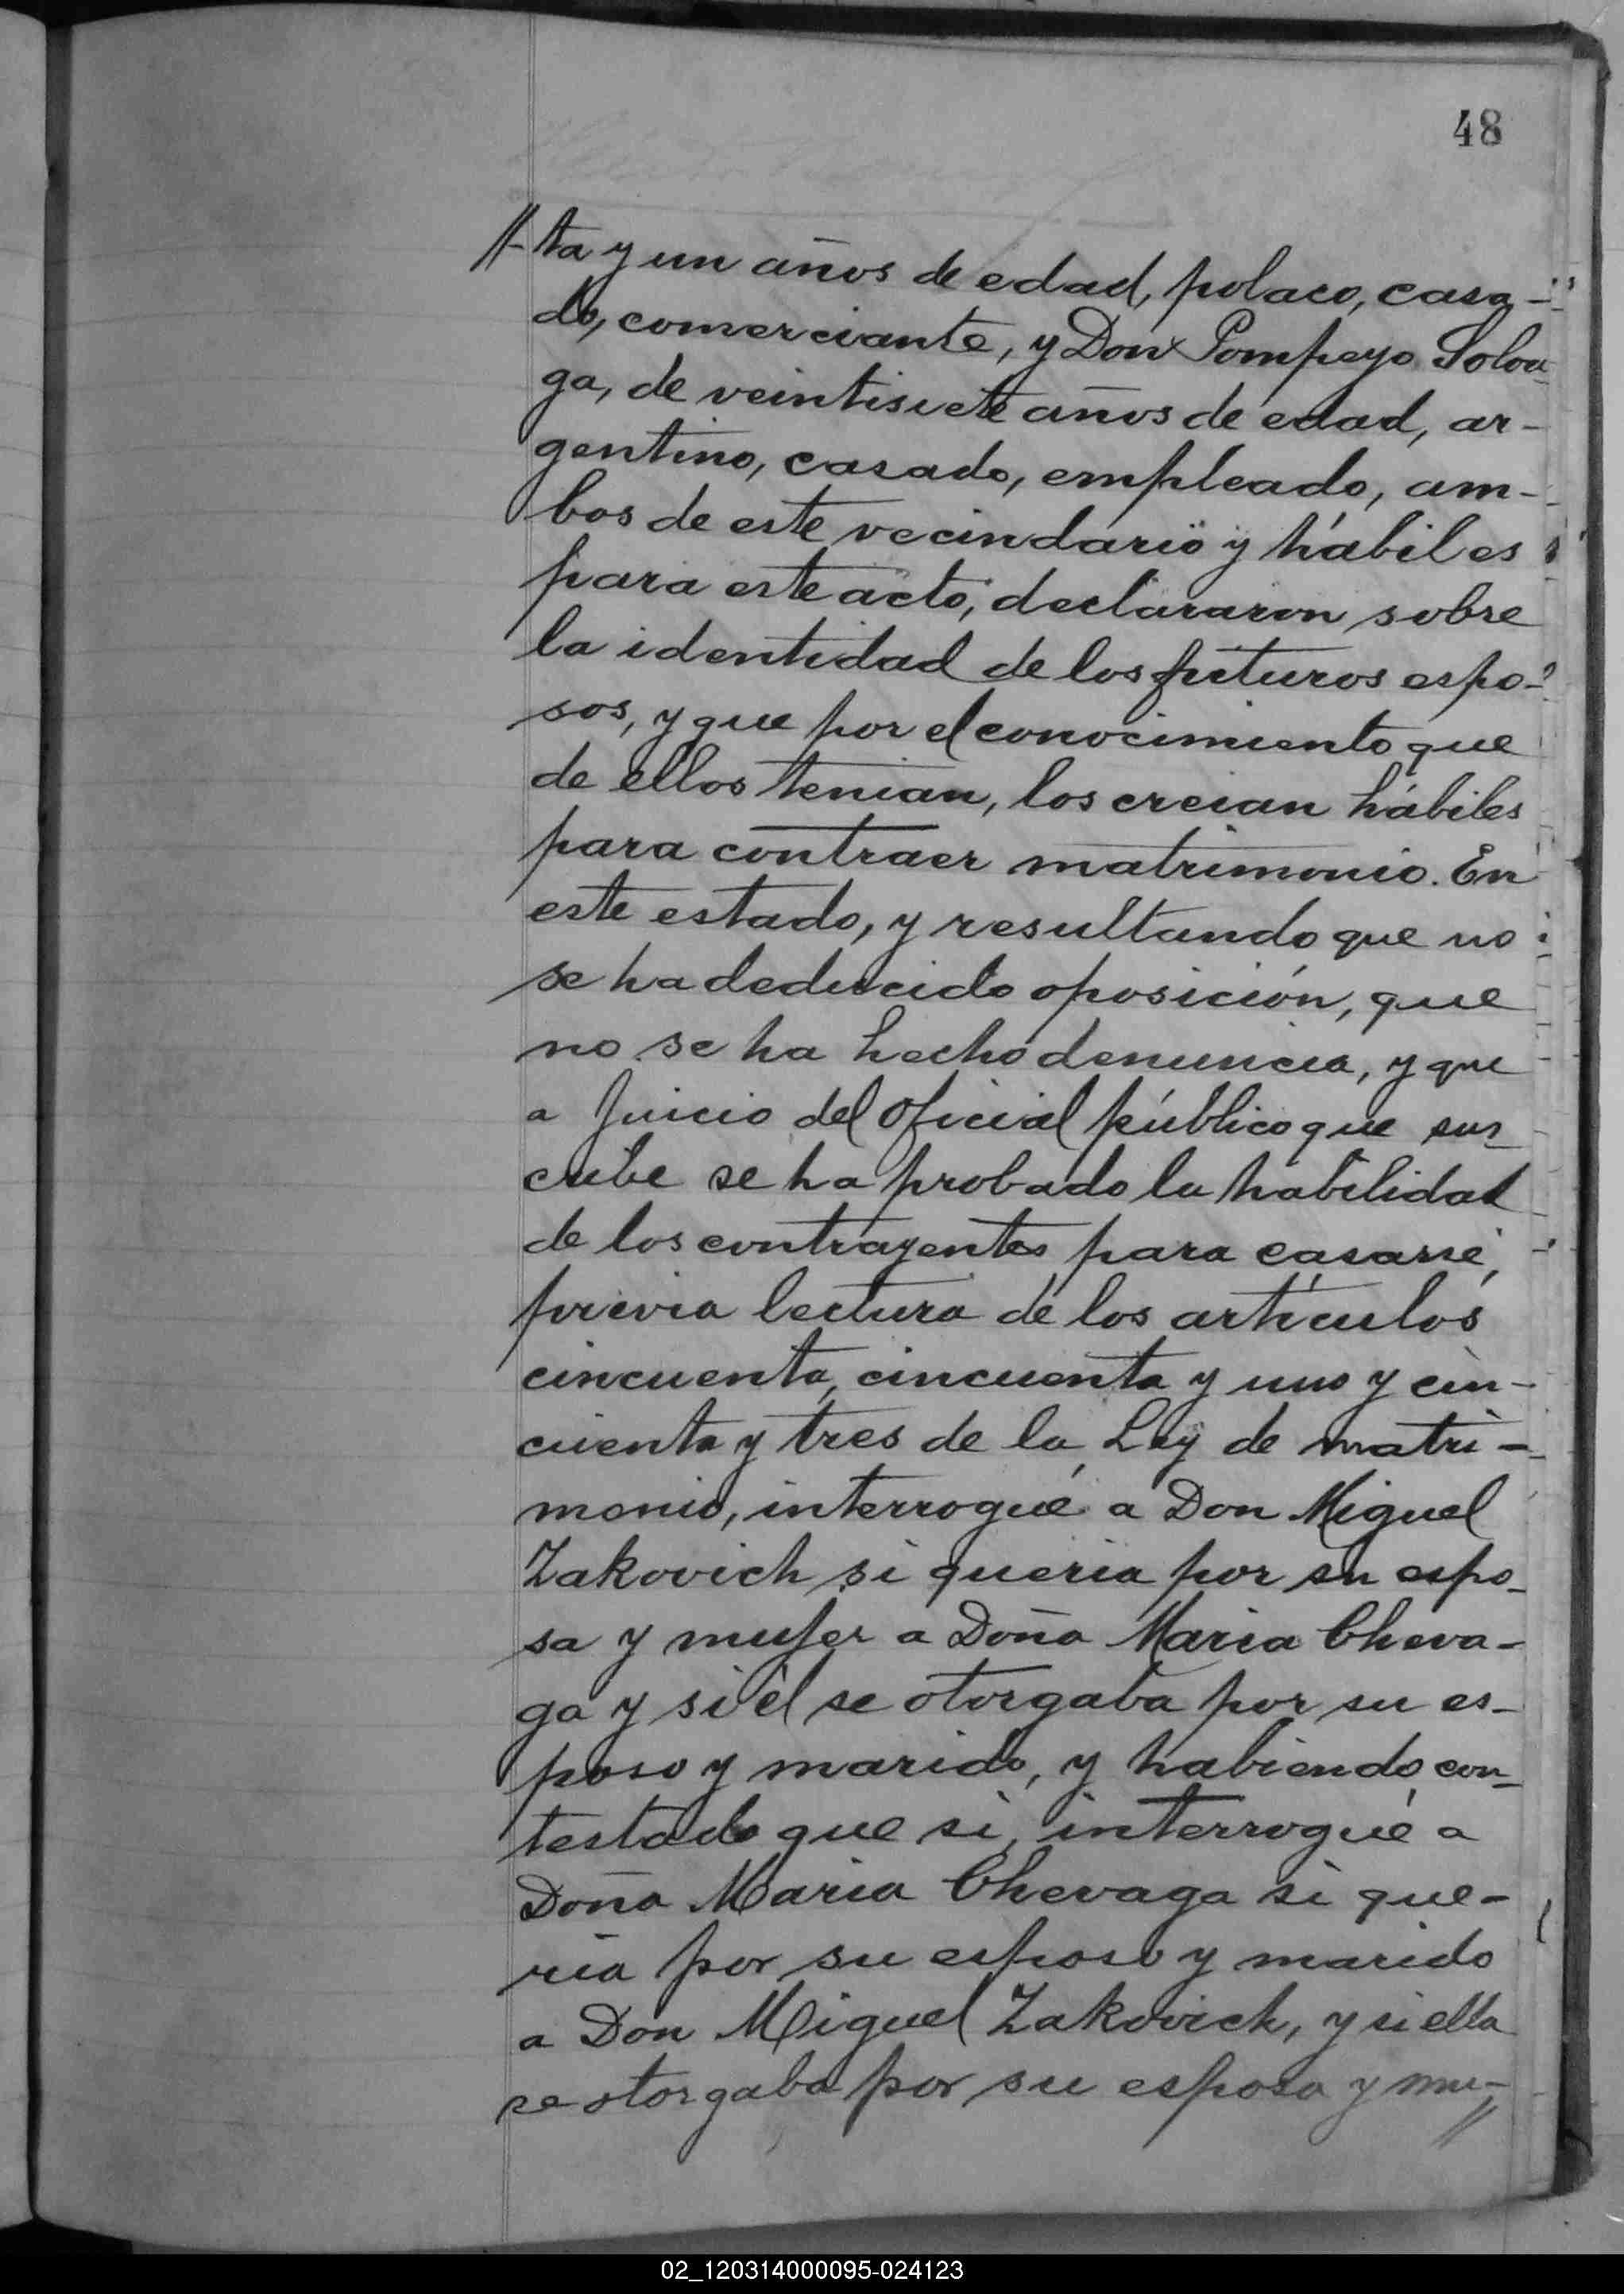 48
//-ta y un años de edad, polaco, casa-
do, comerciante, y Don Pompeyo Soloa-
ga, de veintisiete años de edad, ar-
gentino, casado, empleado, am-
bos de este vecindario y hábiles
para este acto, declararon sobre
la identidad de los futuros espo-
sos, y que por el conocimiento que
de ellos tenian, los creian hábiles
para contraer matrimonio. En
este estado, y resultando que no
se ha deducido oposición, que
no se ha hecho denuncia, y que
a Juicio del Oficial público que sus-
cribe se ha probado la habilidad
de los contrayentes para casarse,
previa lectura de los artículos
cincuenta, cincuenta y uno y cin-
cuenta y tres de la Ley de matri-
monio, interrogué a Don Miguel
Zakovich si queria por su espo-
sa y mujer a Doña Maria Cheva-
ga y si él se otorgaba por su es-
poso y marido, y habiendo con-
testado que si, interrogué a
Doña Maria Chevaga si que-
ria por su esposo y marido
a Don Miguel Zakovich, y si ella
se otorgaba por su esposa y mu-//
02_120314000095-024123